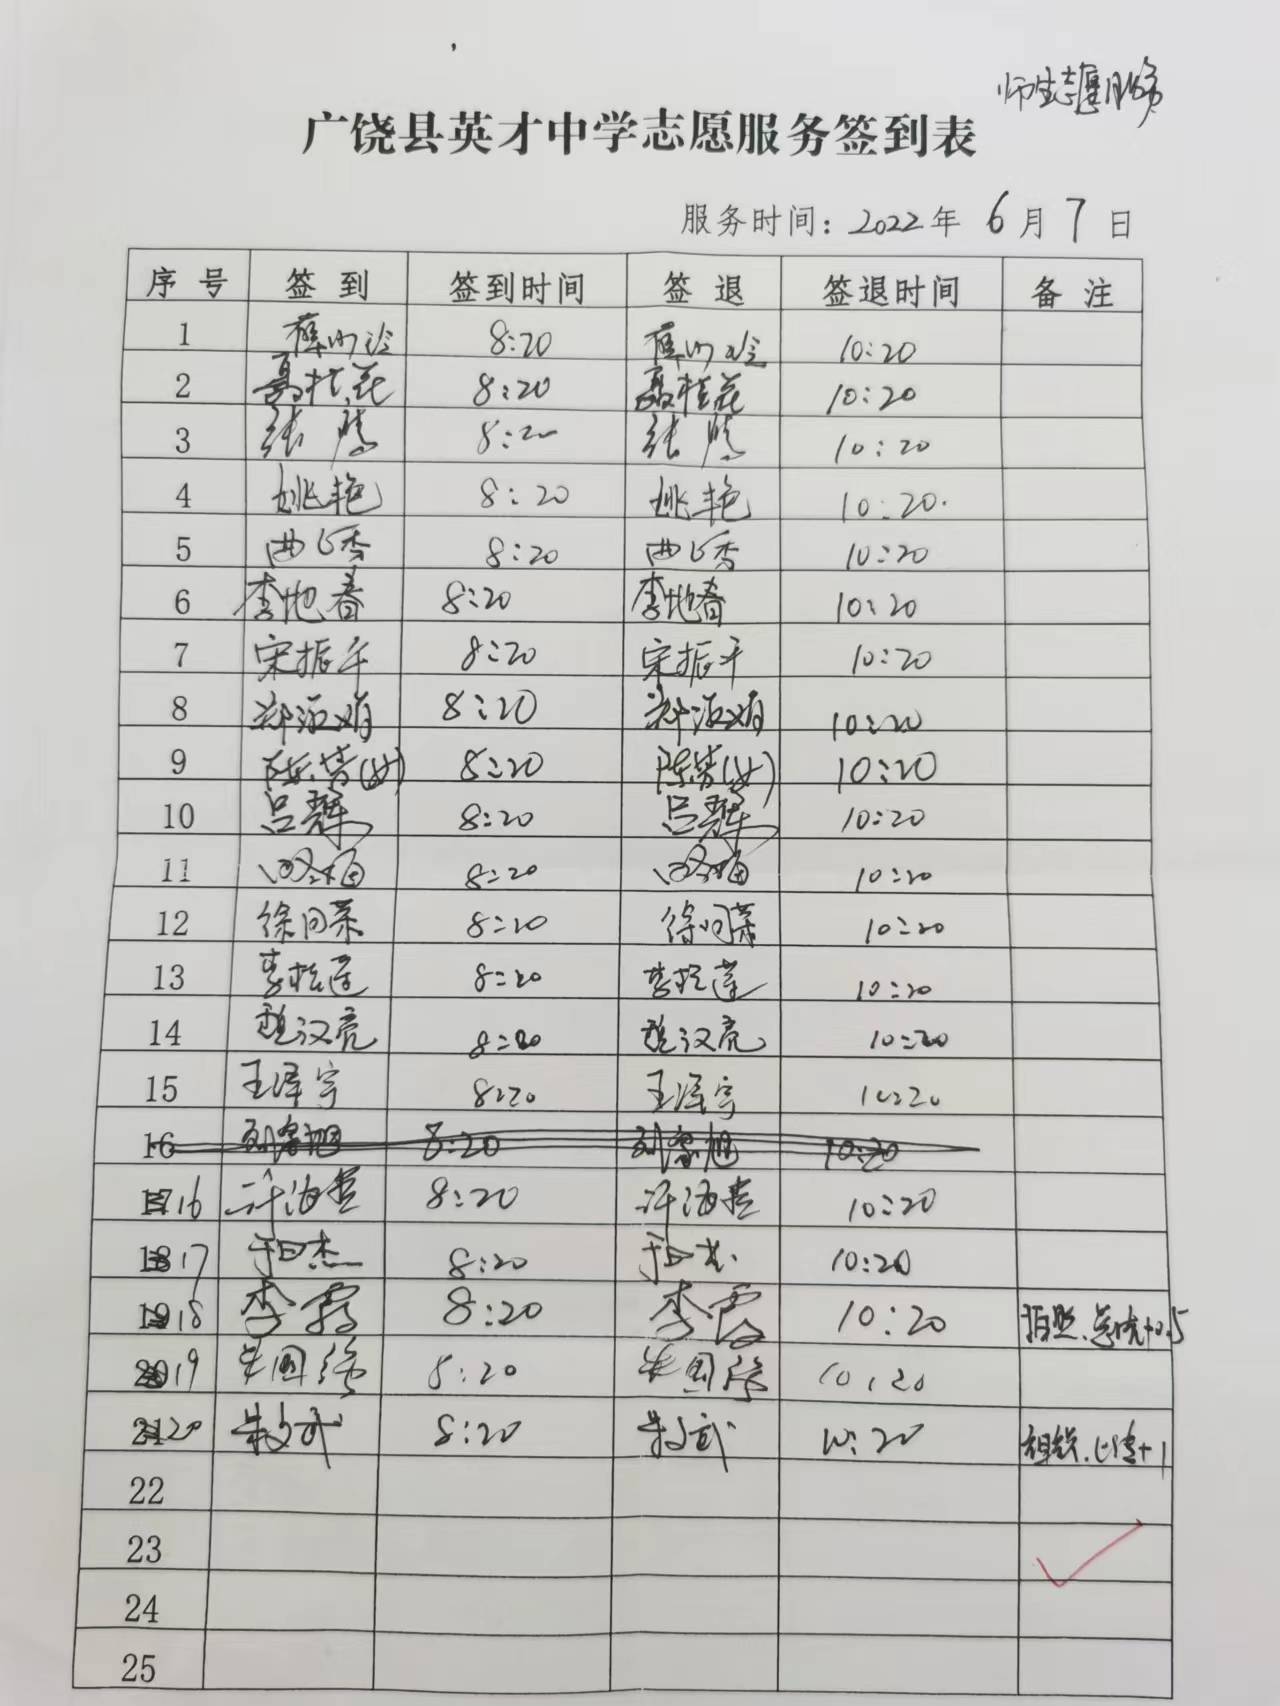 师生志愿服务
广饶县英才中学志愿服务签到表
服务时间：2022年 6月 7日
序号 签到 签到时间 签退 签退时间 备注
1 8:20 10:20
2 聂桂花 8:20 聂桂花 10:20
3 张腾 8:20 张腾 10:20
4 姚艳 8:20 姚艳 10:20.
5 曲 秀 8:20 曲 秀 10:20
6 李地春 8:20 李地春 10:20
7 宋振平 8:20 宋振平 10:20
8 郑 娟 8:20 郑 娟 10:20
9 陈芳(女) 8:20 陈芳(女) 10:20
10 吕 8:20 吕 10:20
11 8:20 10:20
12 徐同荣 8:20 徐同荣 10:20
13 李 莲 8:20 李 莲 10:20
14 魏汉亮 8:20 魏汉亮 10:20
15 王泽宇 8:20 王泽宇 10:20
16 刘家旭 8:20 刘家旭 10:20
17 16 许海 8:20 许海 10:20
18 17 杰 8:20 杰 10:20
19 18 李霞 8:20 李霞 10:20 拍照、 +0.5
20 19 朱国 8:20 朱国 10:20
21 20 朱文武 8:20 朱文武 10:20 组织、 +1
22
23
24
25